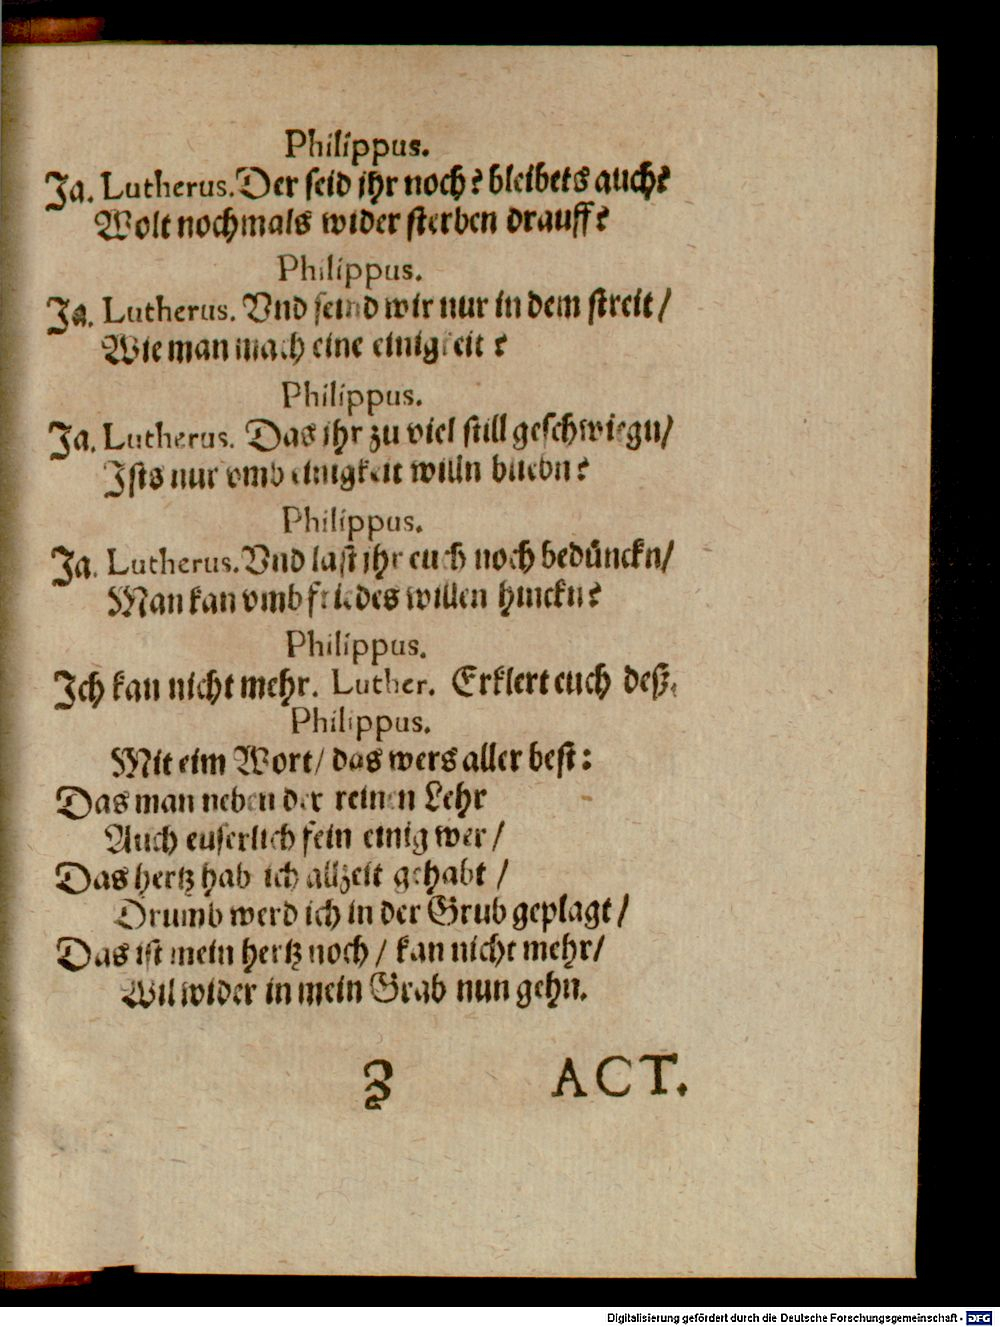 Philippus.
Ja. Lutherus. Der seid jhr noch? bleibets auch?
Wolt nochmals wider sterben drauff?
Philippus.
Ja. Lutherus. Vnd seind wir nur in dem streit /
Wie man mach eine einigkeit?
Philippus.
Ja. Lutherus. Das jhr zu viel still geschwiegn /
Ists nur vmb einigkeit willn
Philippus.
Ja. Lutherus. Vnd last jhr euch noch bedünckn /
Man kan vmb friedes willen hinckn?
Philippus.
Ich kan nicht mehr. Luther. Erklert euch deß.
Philippus.
Mit eim Wort / das wers aller best:
Das man neben der reinen Lehr
Auch euserlich fein einig wer /
Das hertz hab ich allzeit gehabt /
Drumb werd ich in der Grub geplagt /
Das ist mein hertz noch / kan nicht mehr /
Wil wider in mein Grab nun gehn.
3 ACT.
Digitalisierung gefördert durch die Deutsche Forschungsgemeinschaft - DFG